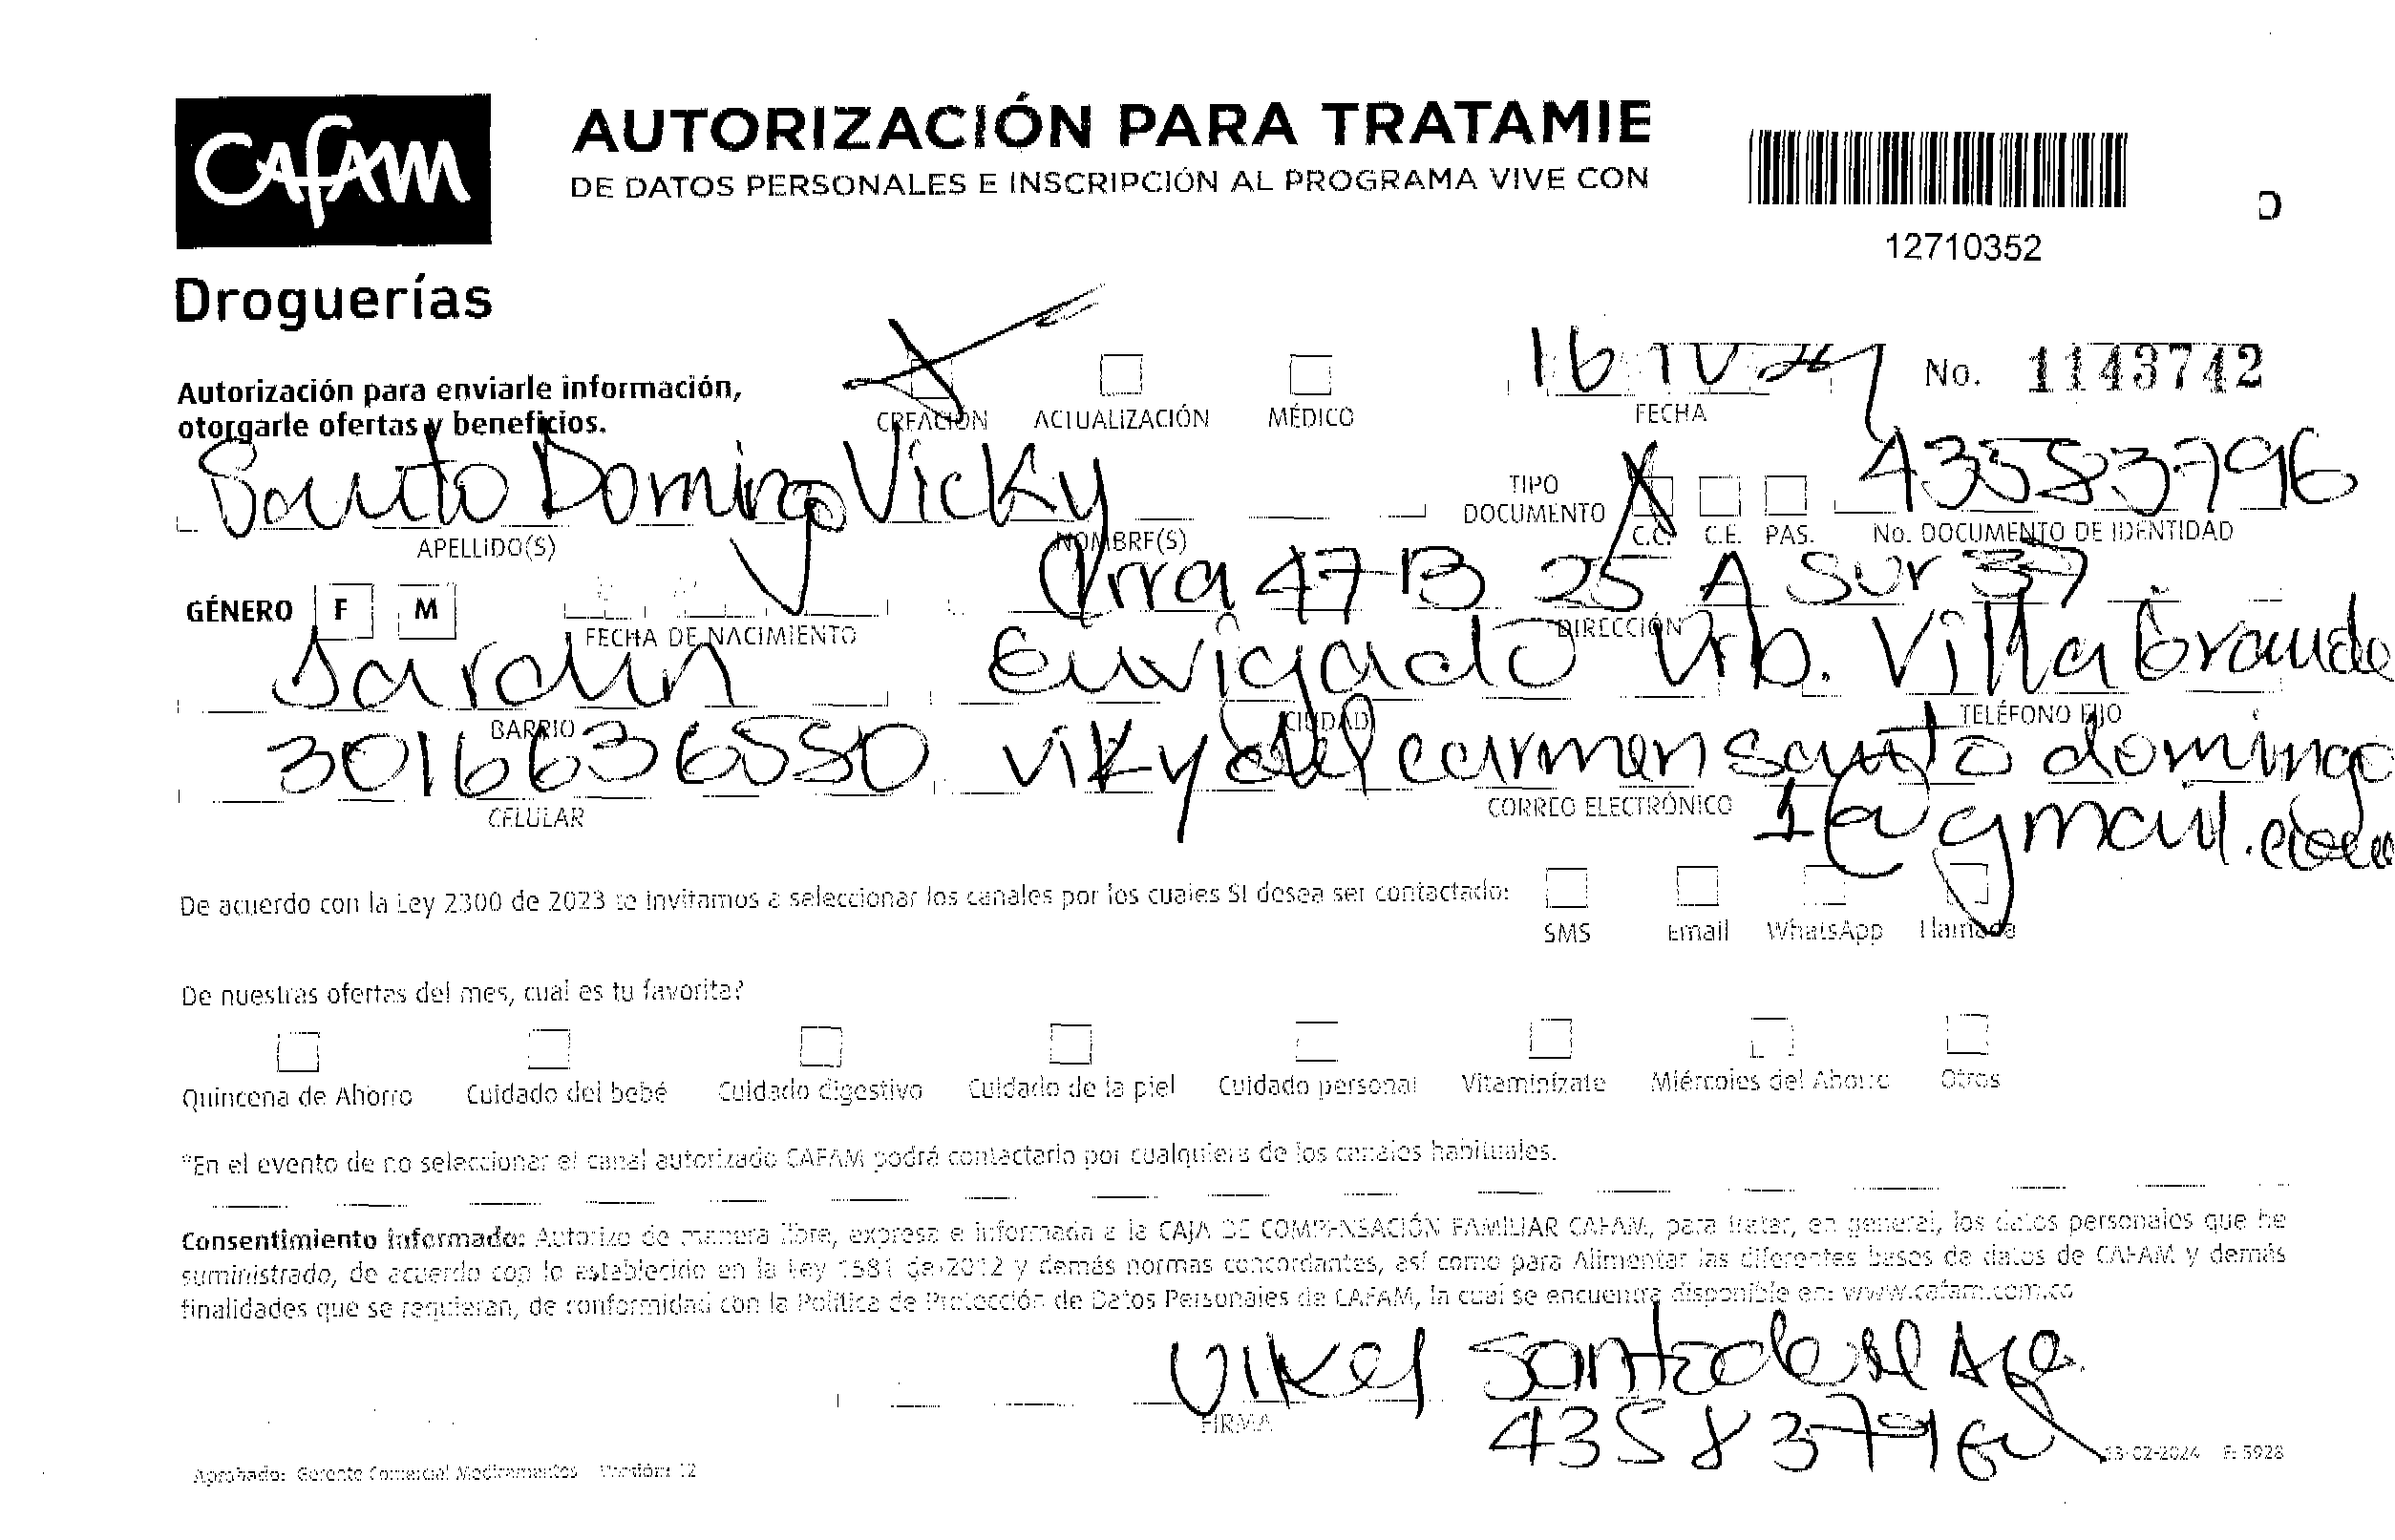 CAFAM
Droguerías
AUTORIZACIÓN PARA TRATAMIE
DE DATOS PERSONALES E INSCRIPCIÓN AL PROGRAMA VIVE CON
12710352
Autorización para enviarle información,
otorgarle ofertas y beneficios.
CREACIÓN ACTUALIZACIÓN MÉDICO
16 IV 24
FECHA
No. 1143742
Santo Domingo Vicky
APELLIDO(S) NOMBRE(S)
TIPO
DOCUMENTO
C.C. C.E. PAS.
43583796
No. DOCUMENTO DE IDENTIDAD
GÉNERO F M
FECHA DE NACIMIENTO
Crra 47 B 25 A Sur 37
DIRECCIÓN
Envigado Urb. Villa Grande
BARRIO CIUDAD TELÉFONO FIJO
3016636550 vikydelcarmensantodomingo
1@gmail.com
CELULAR CORREO ELECTRÓNICO
De acuerdo con la Ley 2300 de 2023 te invitamos a seleccionar los canales por los cuales SI desea ser contactado:
SMS Email WhatsApp Llamada
De nuestras ofertas del mes, cual es tu favorita?
Quincena de Ahorro Cuidado del bebé Cuidado digestivo Cuidado de la piel Cuidado personal Vitaminízate Miércoles del Ahorro Otros
*En el evento de no seleccionar el canal autorizado CAFAM podrá contactarlo por cualquiera de los canales habituales.
Consentimiento informado: Autorizo de manera libre, expresa e informada a la CAJA DE COMPENSACIÓN FAMILIAR CAFAM, para tratar, en general, los datos personales que he
suministrado, de acuerdo con lo establecido en la Ley 1581 de 2012 y demás normas concordantes, así como para Alimentar las diferentes bases de datos de CAFAM y demás
finalidades que se requieran, de conformidad con la Política de Protección de Datos Personales de CAFAM, la cual se encuentra disponible en: www.cafam.com.co
FIRMA
43583796
Aprobado: Gerente Comercial Medicamentos Versión: 12
13-02-2024 F: 5928